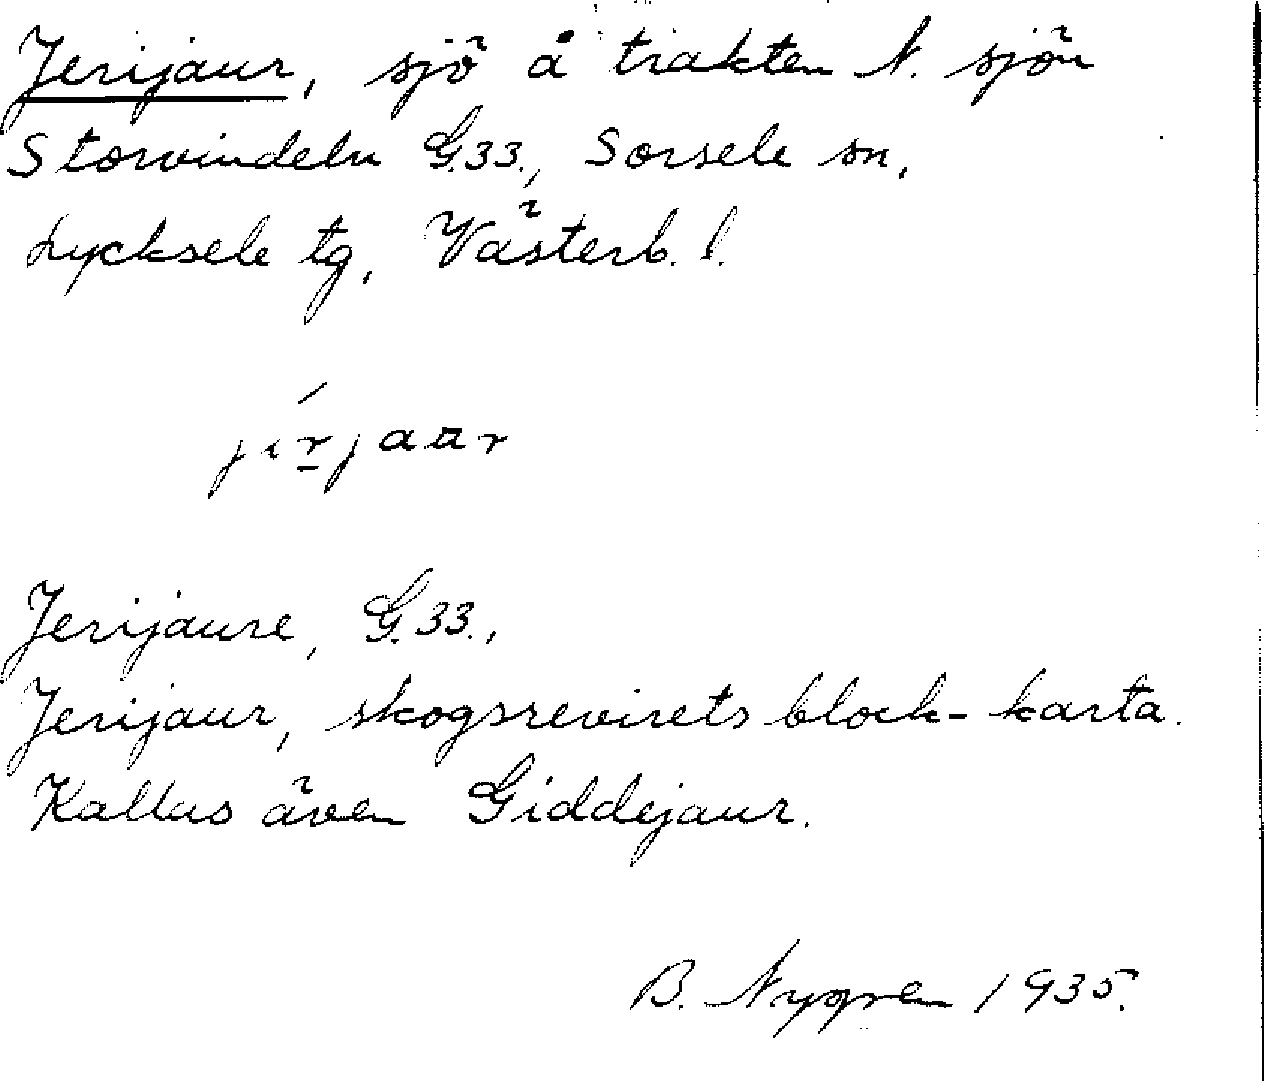 Jerijaur, sjö å trakten N. sjön
Storvindeln G.33., Sorsele sn,
Lycksele tg, Västerb. l.
jírjaur
Jerijaure, G.33.,
Jerijaur, skogsrevirets block-karta.
Kallas även Giddejaur.
B. Nygren 1935.